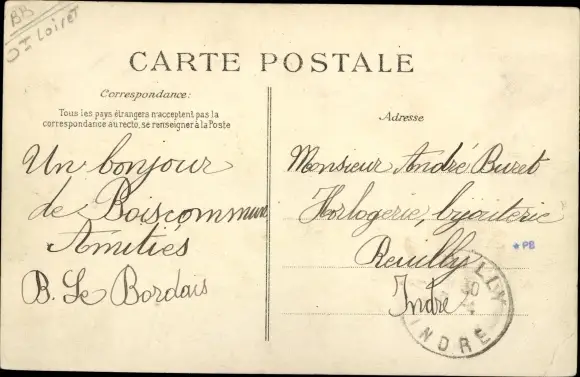 BB
Ot Loiret
CARTE POSTALE
Correspondance:
Tous les pays étrangers n'acceptent pas la
correspondance au recto, se renseigner à la Poste
Un bonjour
de Boiscommun
Amitiés
B. Le Bordais
Adresse
Monsieur André Buret
Horlogerie, bijouterie
Reuilly
Indre
*PB
LLY
INDRE